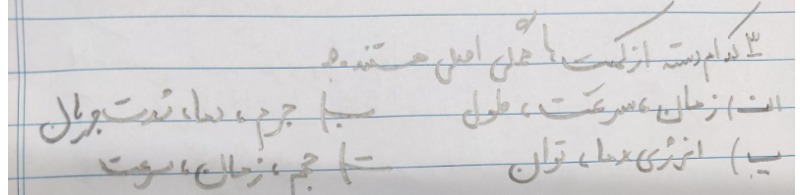 ۳ کدام دسته از کمیت ها همگی اصلی هستند؟
الف) زمان، سرعت، طول ب) جرم، دما، شدت جریان
پ) انرژی، دما، توان ت) حجم، زمان، سرعت